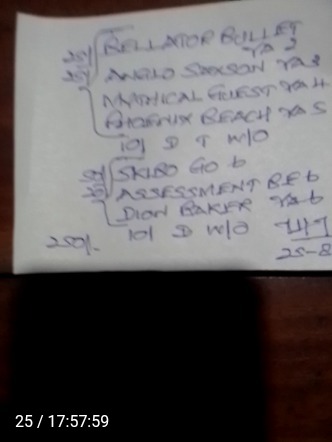 25/ BELLATOR BULLET
YA 2
25/ ANGLO SAXSON YA3
MYTHICAL GUEST YA4
PHOENIX BEACH YA5
10/ D T W/O
50/ SKIBO GO 6
ASSESSMENT BE6
DION BAKER YA6
10/ D W/O
250/-
25-8
25 / 17:57:59